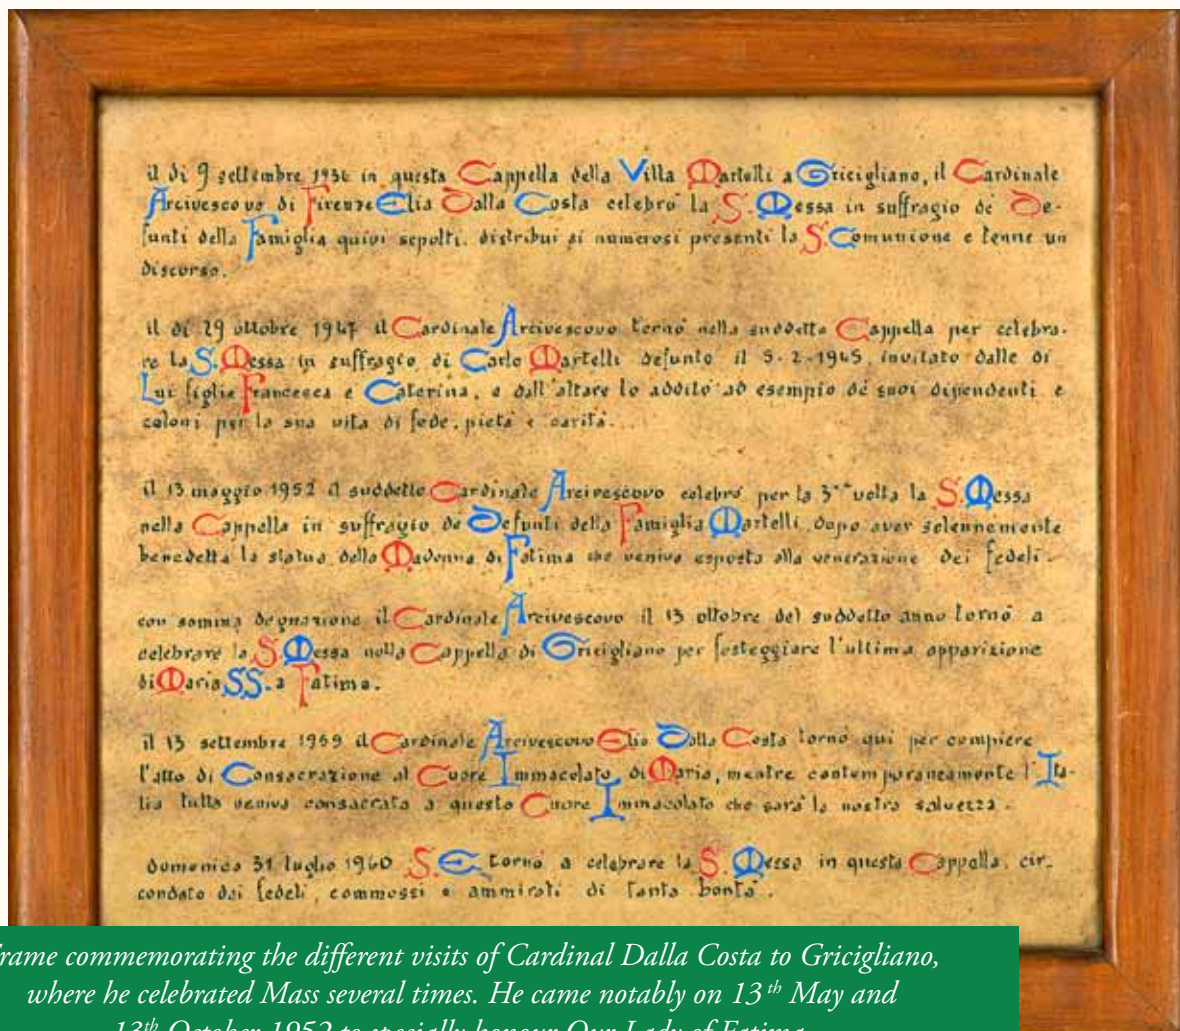 il di 9 settembre 1936 in questa Cappella della Villa Martelli a Gricigliano, il Cardinale
Arcivescovo di Firenze Elia Dalla Costa celebrò la S. Messa in suffragio de' De-
funti della Famiglia quivi sepolti, distribui ai numerosi presenti la S. Comunione e tenne un
discorso.
il di 29 ottobre 1947 il Cardinale Arcivescovo tornò nella suddetta Cappella per celebra-
re la S. Messa in suffragio di Carlo Martelli defunto il 5-2-1945, invitato dalle di
Lui figlie Francesca e Caterina, e dall'altare lo additò ad esempio de' suoi dipendenti e
coloni per la sua vita di fede, pietà e carità...
il 13 maggio 1952 il suddetto Cardinale Arcivescovo celebrò per la 3ᵃ volta la S. Messa
nella Cappella in suffragio de' Defunti della Famiglia Martelli, dopo aver solennemente
benedetta la statua della Madonna di Fatima che veniva esposta alla venerazione dei fedeli.
con somma degnazione il Cardinale Arcivescovo il 13 ottobre del suddetto anno tornò a
celebrare la S. Messa nella Cappella di Gricigliano per festeggiare l'ultima apparizione
di Maria SS. a Fatima.
il 13 settembre 1959 il Cardinale Arcivescovo Elia Dalla Costa tornò qui per compiere
l'atto di Consacrazione al Cuore Immacolato di Maria, mentre contemporaneamente l'Ita-
lia tutta veniva consacrata a questo Cuore Immacolato che sarà la nostra salvezza.
domenica 31 luglio 1960 S. E. tornò a celebrare la S. Messa in questa Cappella, cir-
condato dai fedeli, commossi e ammirati di tanta bontà.
rame commemorating the different visits of Cardinal Dalla Costa to Gricigliano,
where he celebrated Mass several times. He came notably on 13th May and
13th October 1952 to specially honour Our Lady of Fatima